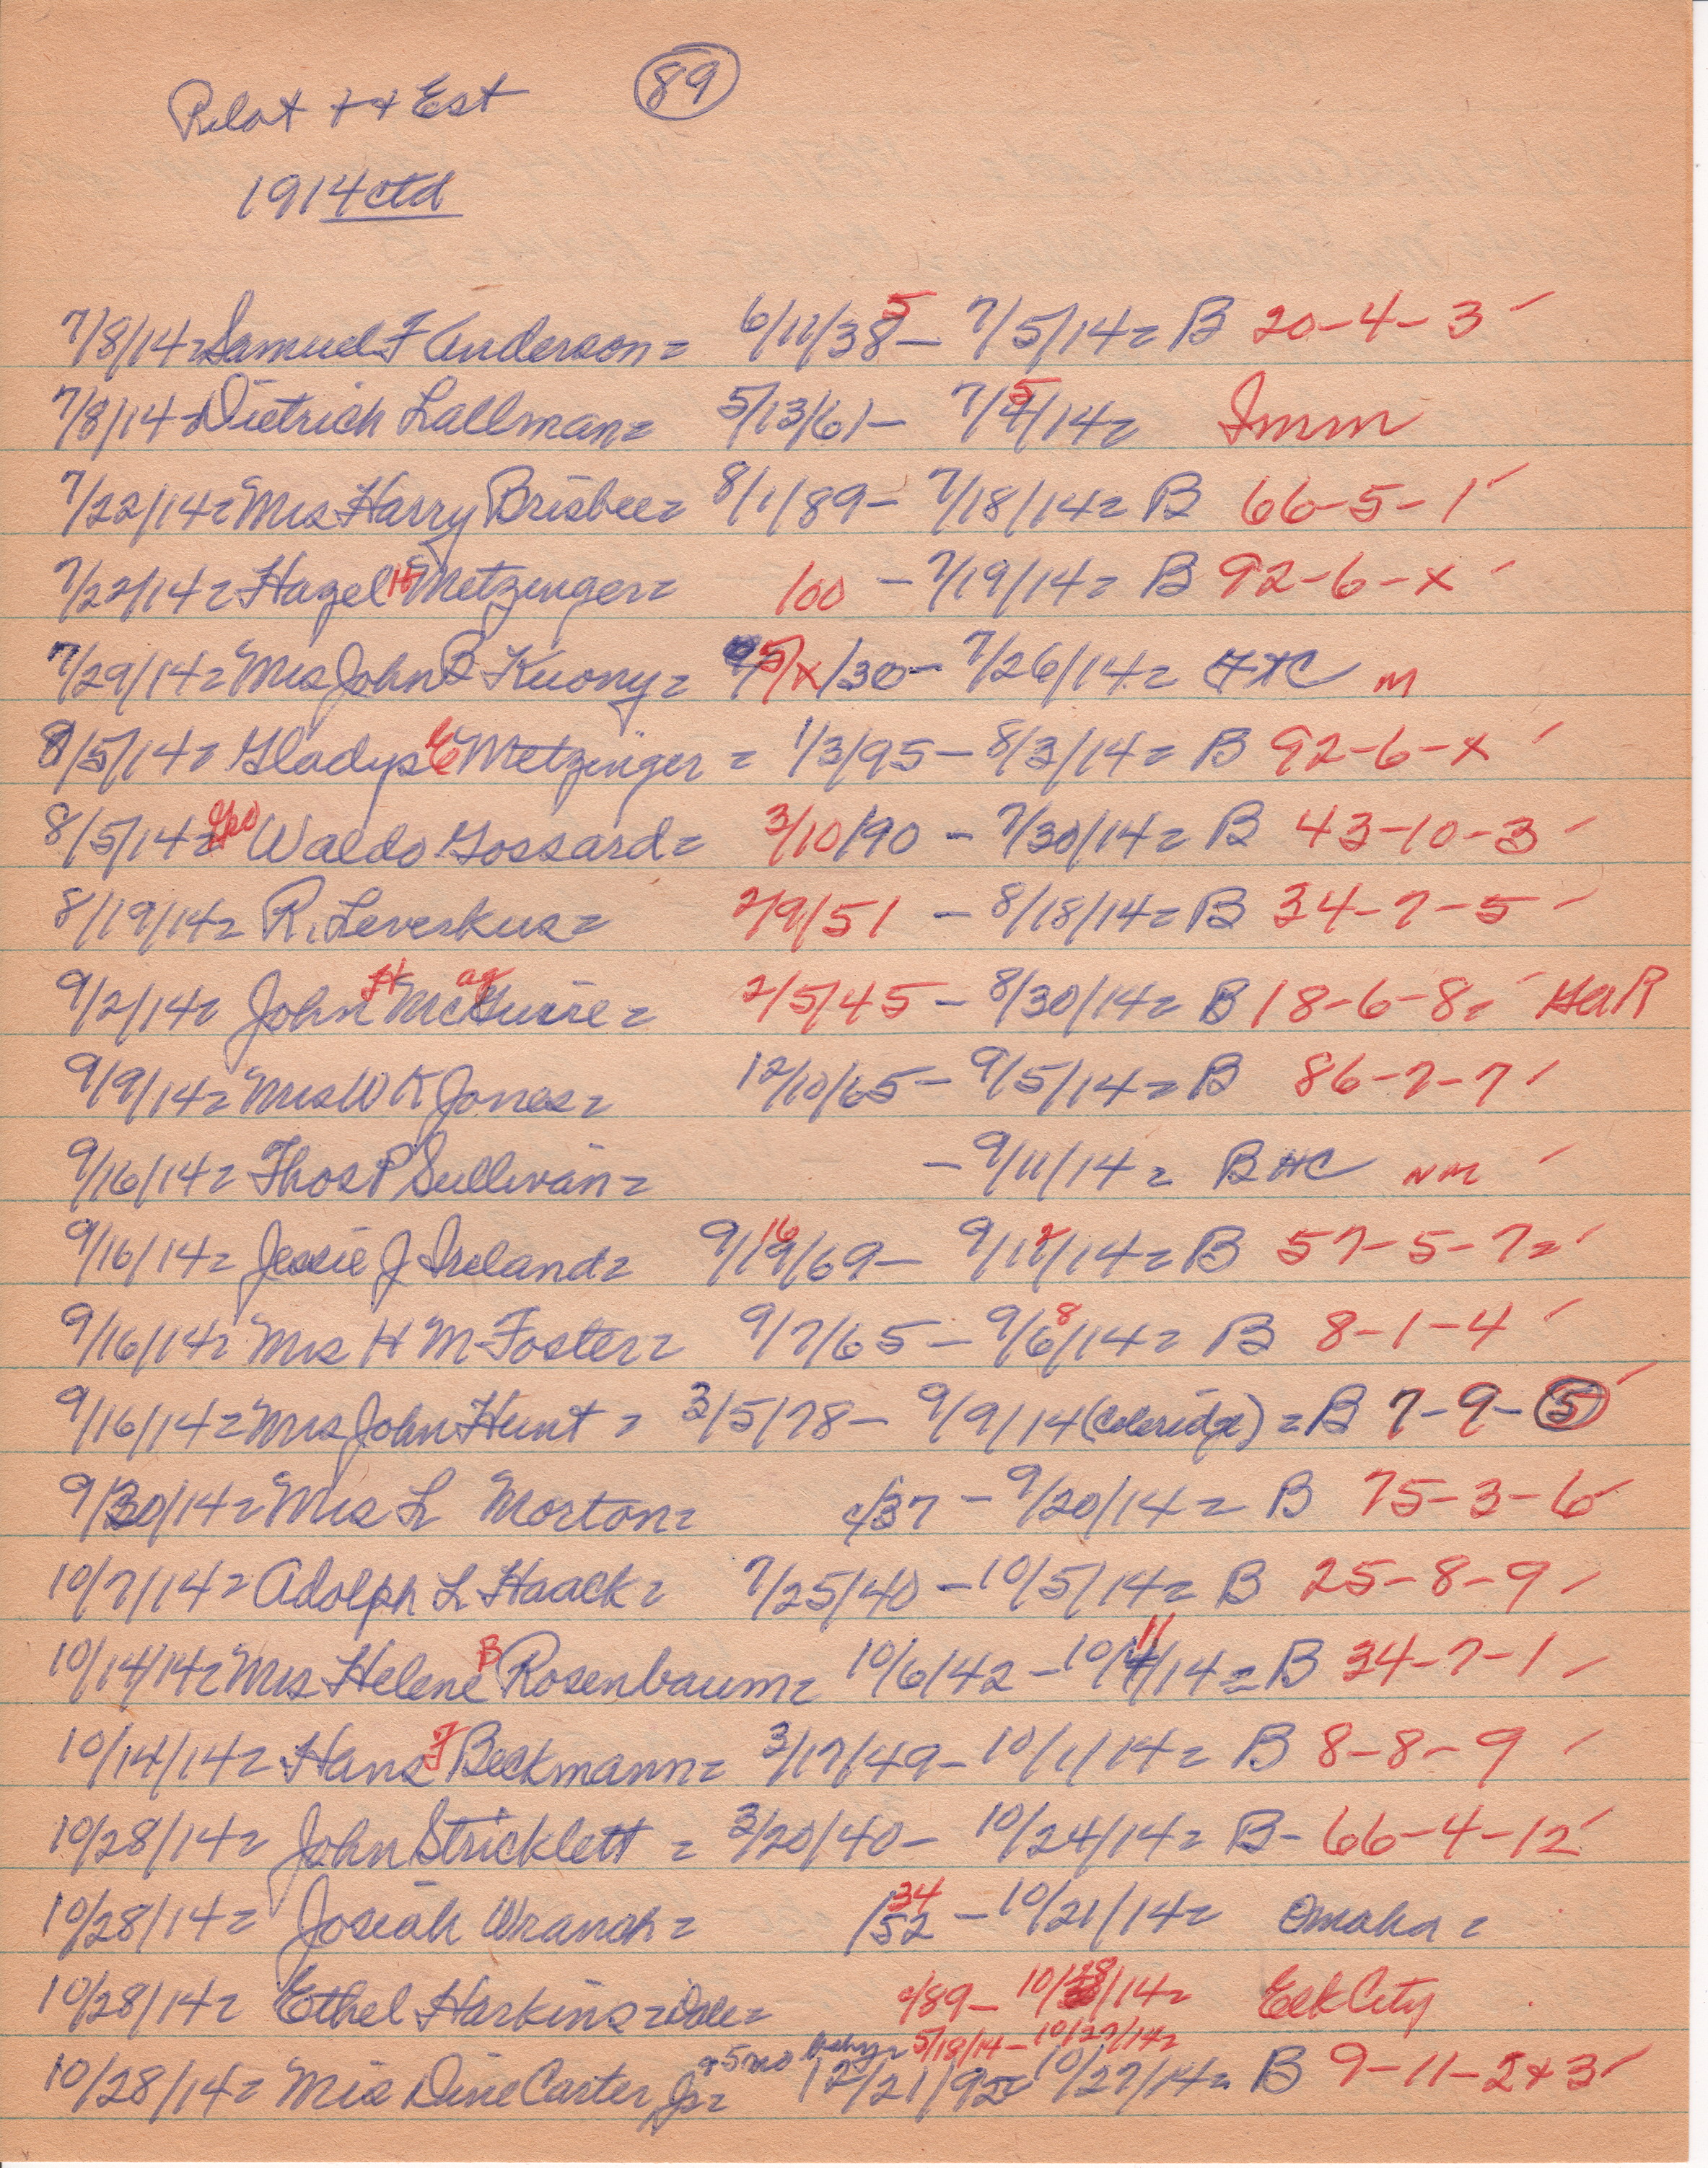 Pilot ++ Est 89
1914 ctd
7/8/14= Samuel F Anderson= 6/11/38 5 - 7/5/14= B 20-4-3 ✓
7/8/14= Dietrich Lallman= 5/13/61- 7/4 5/14= Imm
7/22/14= Mrs Harry Brisbee= 8/1/89- 7/18/14= B 66-5-1 ✓
7/22/14= Hazel H Metzinger= 100 - 7/19/14= B 92-6-x ✓
7/29/14= Mrs John B Kuony= 5/x/30- 7/26/14= FtC M
8/5/14= Gladys E Metzinger = 1/3/95- 8/3/14= B 92-6-x ✓
8/5/14= Geo Waldo Gossard= 3/10/90 - 7/30/14= B 43-10-3 ✓
8/19/14= R. Leverkus= 2/9/51 - 8/18/14= B 34-7-5 ✓
9/2/14= John H McGuire= ag 2/5/45- 8/30/14= B 18-6-8= ✓ GAR
9/9/14= Mrs W K Jones= 12/10/65- 9/5/14= B 86-7-7 ✓
9/16/14= Thos P Sullivan= -9/11/14= B HC NM ✓
9/16/14= Jessie J Ireland= 9/19 16/69- 9/11 2/14= B 57-5-7= ✓
9/16/14= Mrs H M Foster= 9/7/65- 9/6 8/14= B 8-1-4 ✓
9/16/14= Mrs John Hunt = 3/5/78- 9/9/14 (Coleridge) = B 7-9-5 ✓
9/30/14= Mrs L Morton= c/37 - 9/20/14= B 75-3-6 ✓
10/7/14= Adolph L Haack= 7/25/40 - 10/5/14= B 25-8-9 ✓
10/14/14= Mrs Helene B Rosenbaum= 10/6/42- 10/11/14= B 34-7-1 ✓
10/14/14= Hans J Beckmann= 3/17/49- 10/1/14= B 8-8-9 ✓
10/28/14= John Stricklett = 3/20/40- 10/24/14= B- 66-4-12 ✓
10/28/14= Josiah Wranch= /52 34 - 10/21/14= Omaha =
10/28/14= Ethel Harkins= Dale= c/89- 10/28/14= Elk City
+ 5 mo baby= 5/18/14- 10/27/14=
10/28/14= Mrs Dine Carter Jr= 12/21/92= 10/27/14= B 9-11-2+3 ✓